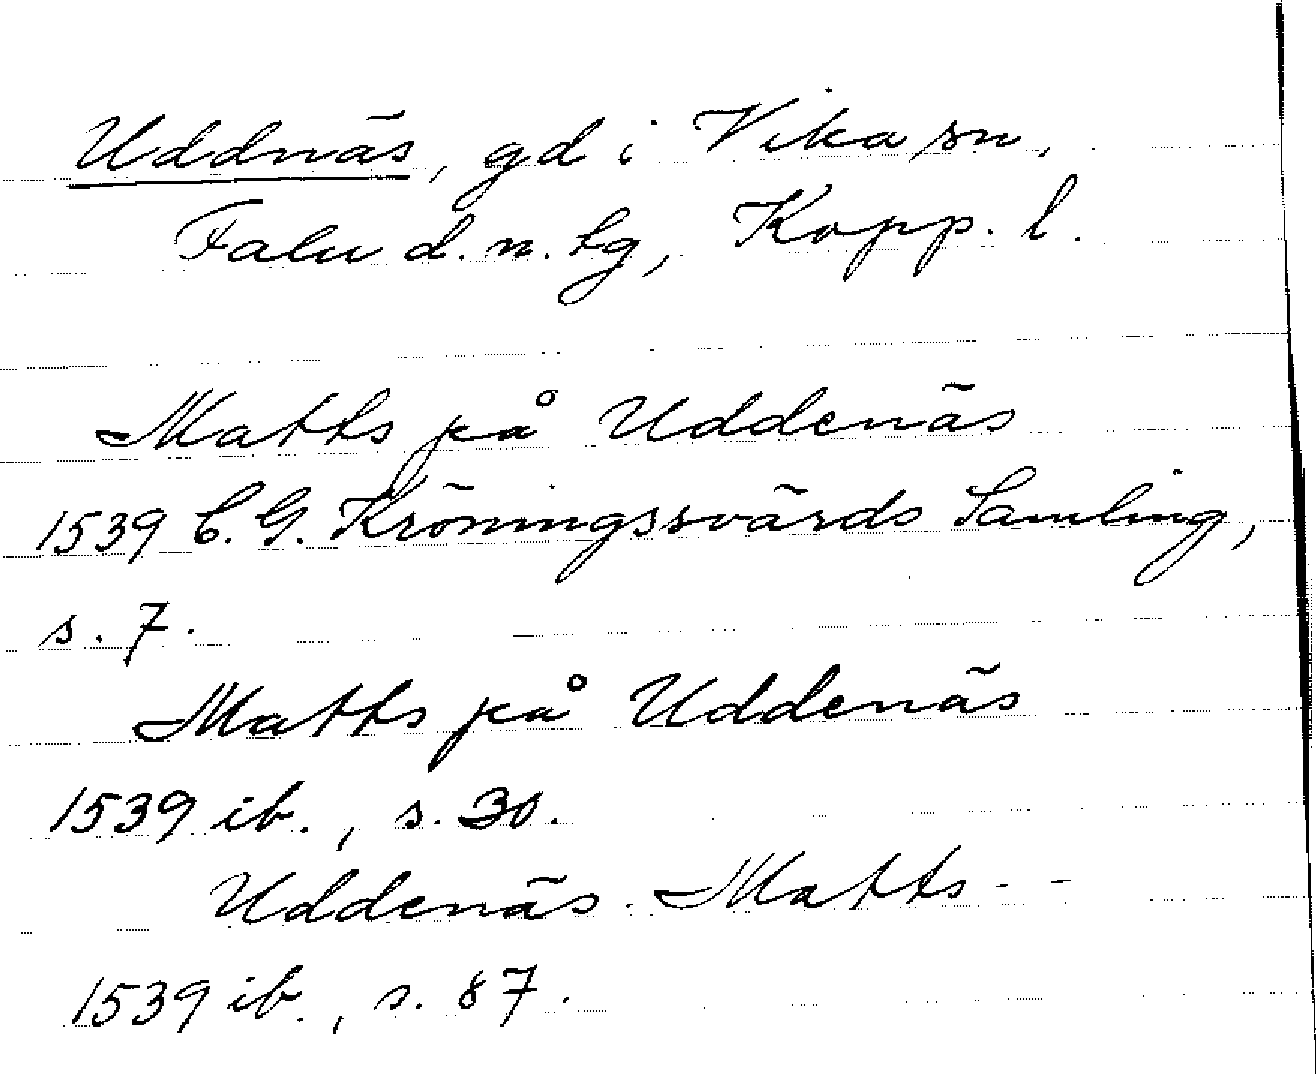 Uddnäs, gd i Vika sn,
Falu d. n. tg, Kopp. l.
Matts på Uddenäs
1539 C. G. Kröningssvärds Samling,
s. 7.
Matts på Uddenäs
1539 ib., s. 30.
Uddenäs Matts - -
1539 ib., s. 87.